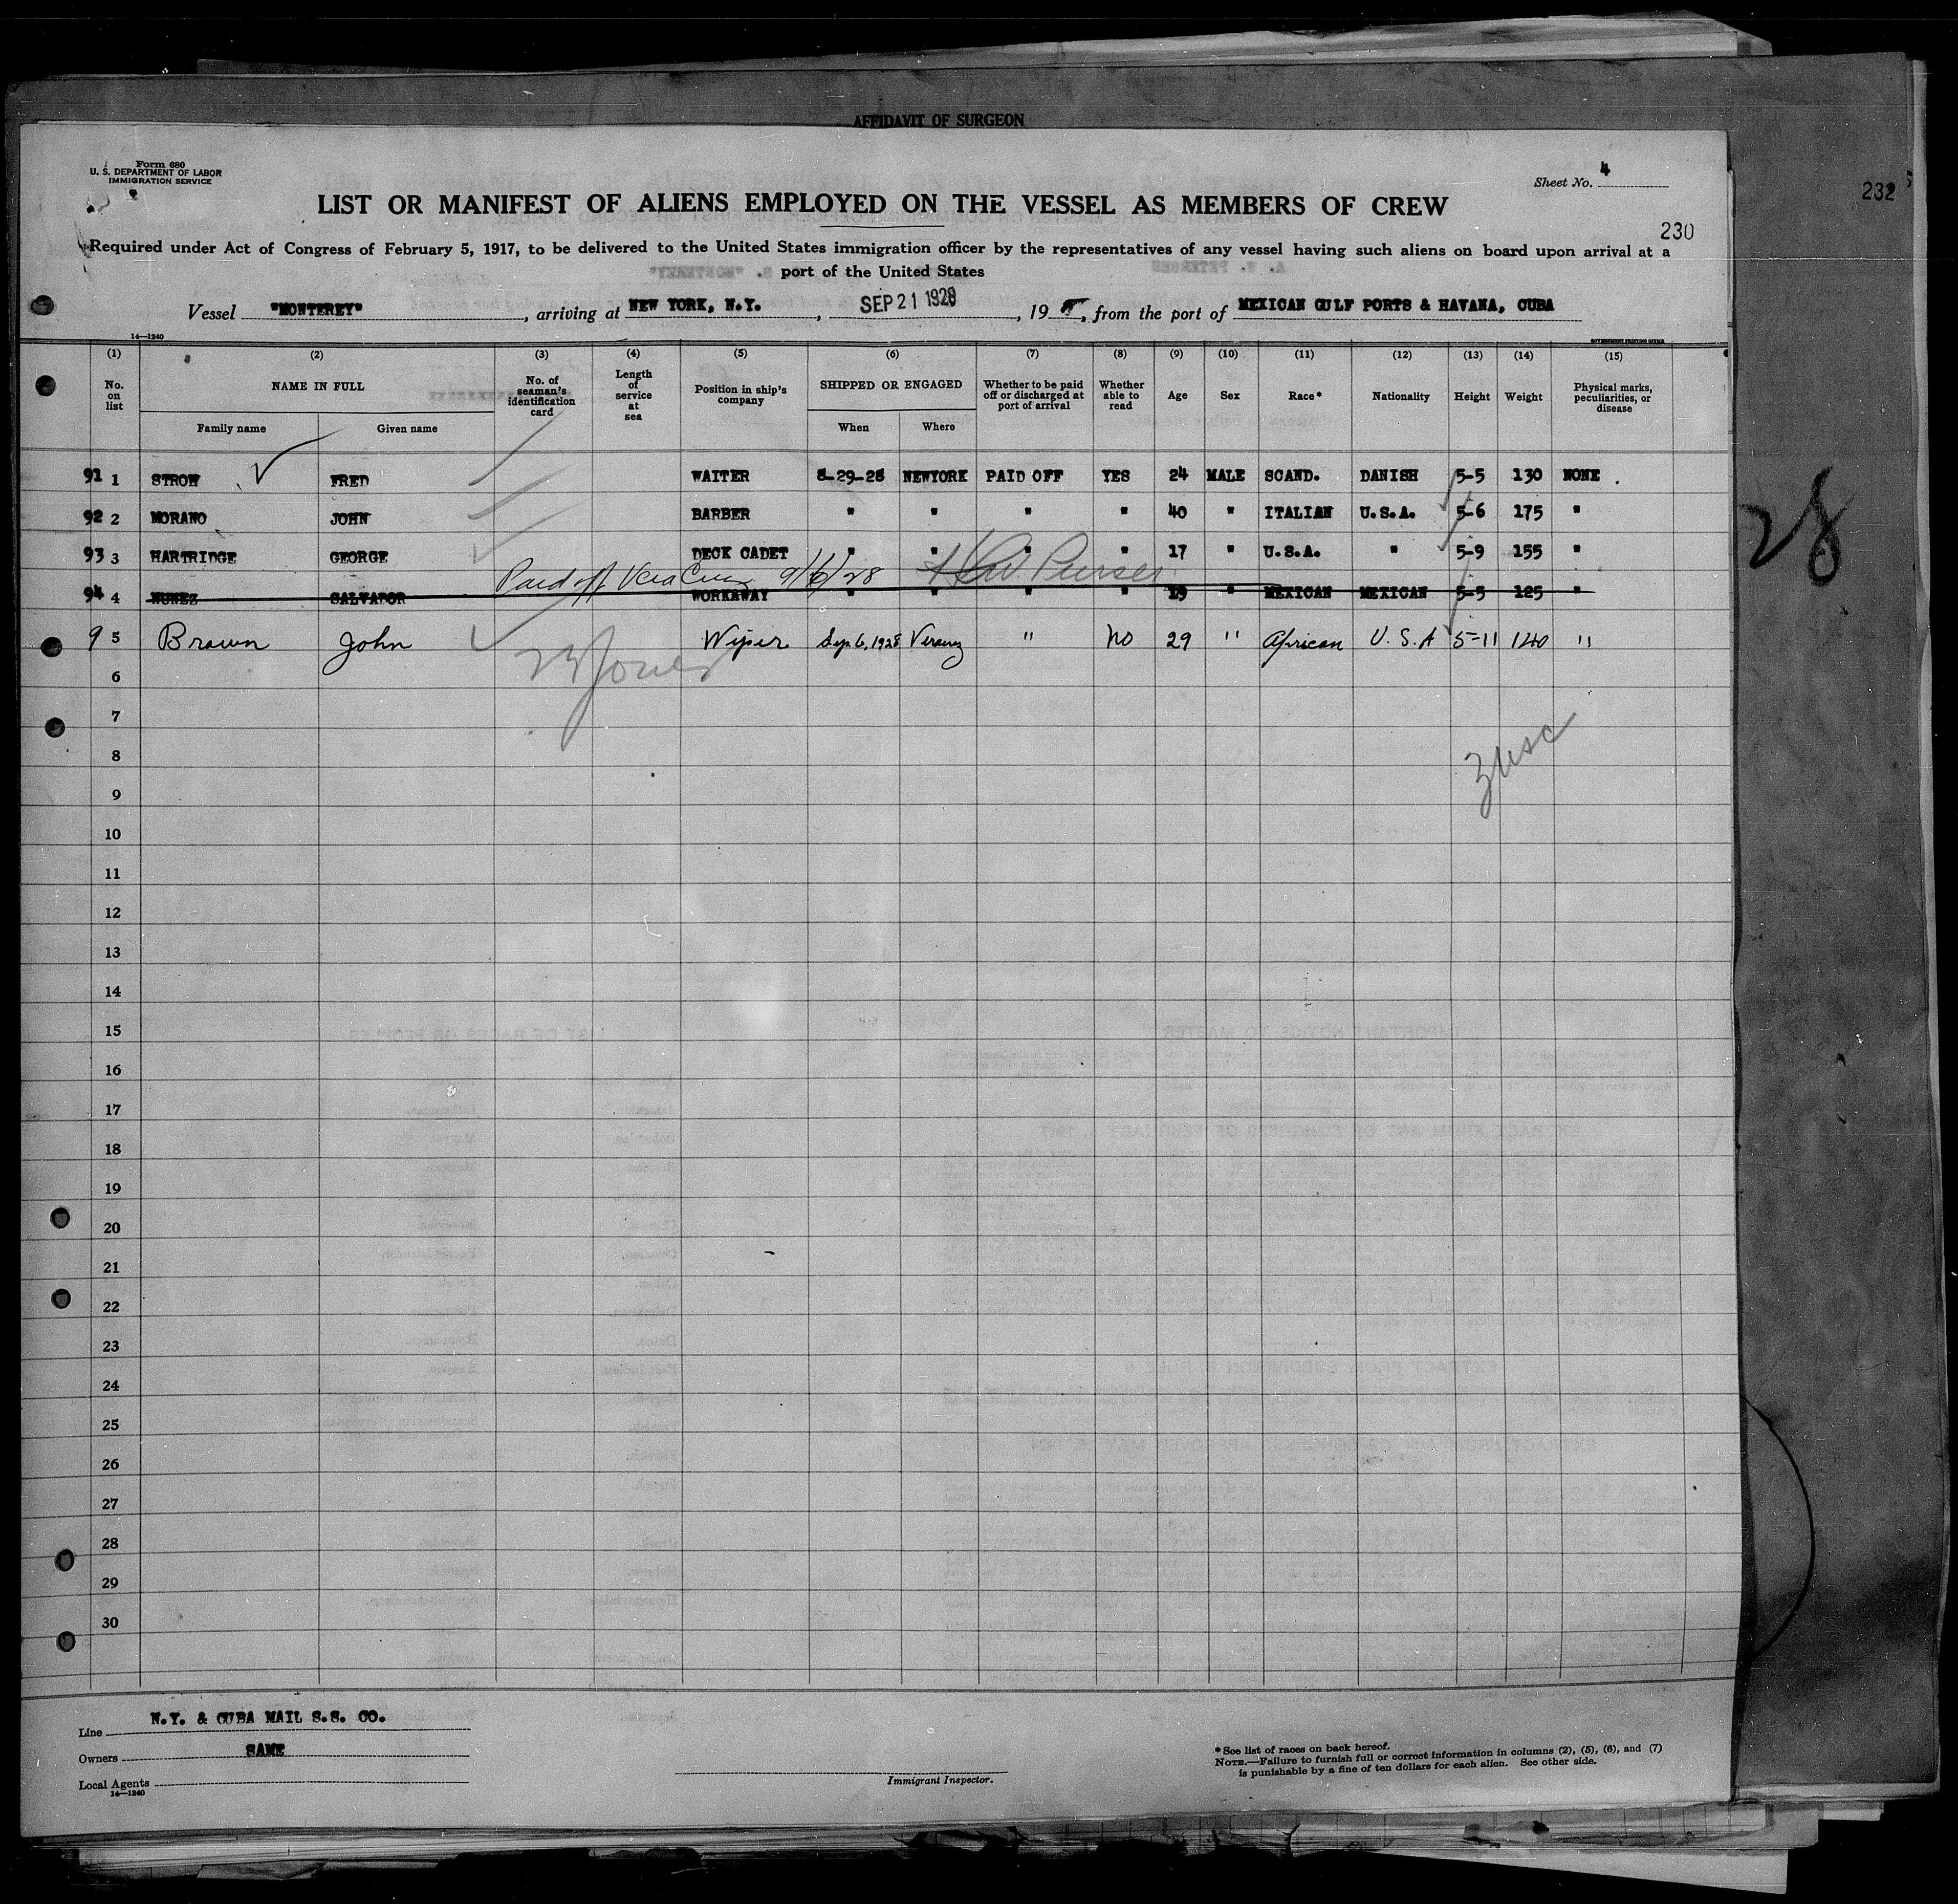 AFFIDAVIT OF SURGEON
Form 680
U. S. DEPARTMENT OF LABOR
IMMIGRATION SERVICE
Sheet No. 4
232
LIST OR MANIFEST OF ALIENS EMPLOYED ON THE VESSEL AS MEMBERS OF CREW
230
Required under Act of Congress of February 5, 1917, to be delivered to the United States immigration officer by the representatives of any vessel having such aliens on board upon arrival at a
port of the United States
Vessel "MONTEREY", arriving at NEW YORK, N.Y., SEP 21 1928, 19, from the port of MEXICAN GULF PORTS & HAVANA, CUBA
14—1240
GOVERNMENT PRINTING OFFICE
(1) (2) (3) (4) (5) (6) (7) (8) (9) (10) (11) (12) (13) (14) (15)
No. on list NAME IN FULL No. of seaman's identification card Length of service at sea Position in ship's company SHIPPED OR ENGAGED Whether to be paid off or discharged at port of arrival Whether able to read Age Sex Race* Nationality Height Weight Physical marks, peculiarities, or disease
Family name Given name When Where
91 1 STROM FRED WAITER 8-29-28 NEWYORK PAID OFF YES 24 MALE SCAND. DANISH 5-5 130 NONE .
92 2 MORANO JOHN BARBER " " " " 40 " ITALIAN U.S.A. 5-6 175 "
93 3 HARTRIDGE GEORGE DECK CADET " " " " 17 " U.S.A. " 5-9 155 "
Paid off Vera Cruz 9/6/28 Purser
94 4 NUNEZ SALVADOR WORKAWAY " " " " 19 " MEXICAN MEXICAN 5-5 125 "
9 5 Brown John Wiper Sep. 6, 1928 Veracruz " No 29 " African U.S.A 5-11 140 "
28
6
7
3 usc
8
9
10
11
12
13
14
15
16
17
18
19
20
21
22
23
24
25
26
27
28
29
30
Line N.Y. & CUBA MAIL S.S. CO.
Owners SAME
Local Agents
14—1240
Immigrant Inspector.
* See list of races on back hereof.
NOTE.—Failure to furnish full or correct information in columns (2), (5), (6), and (7)
is punishable by a fine of ten dollars for each alien. See other side.